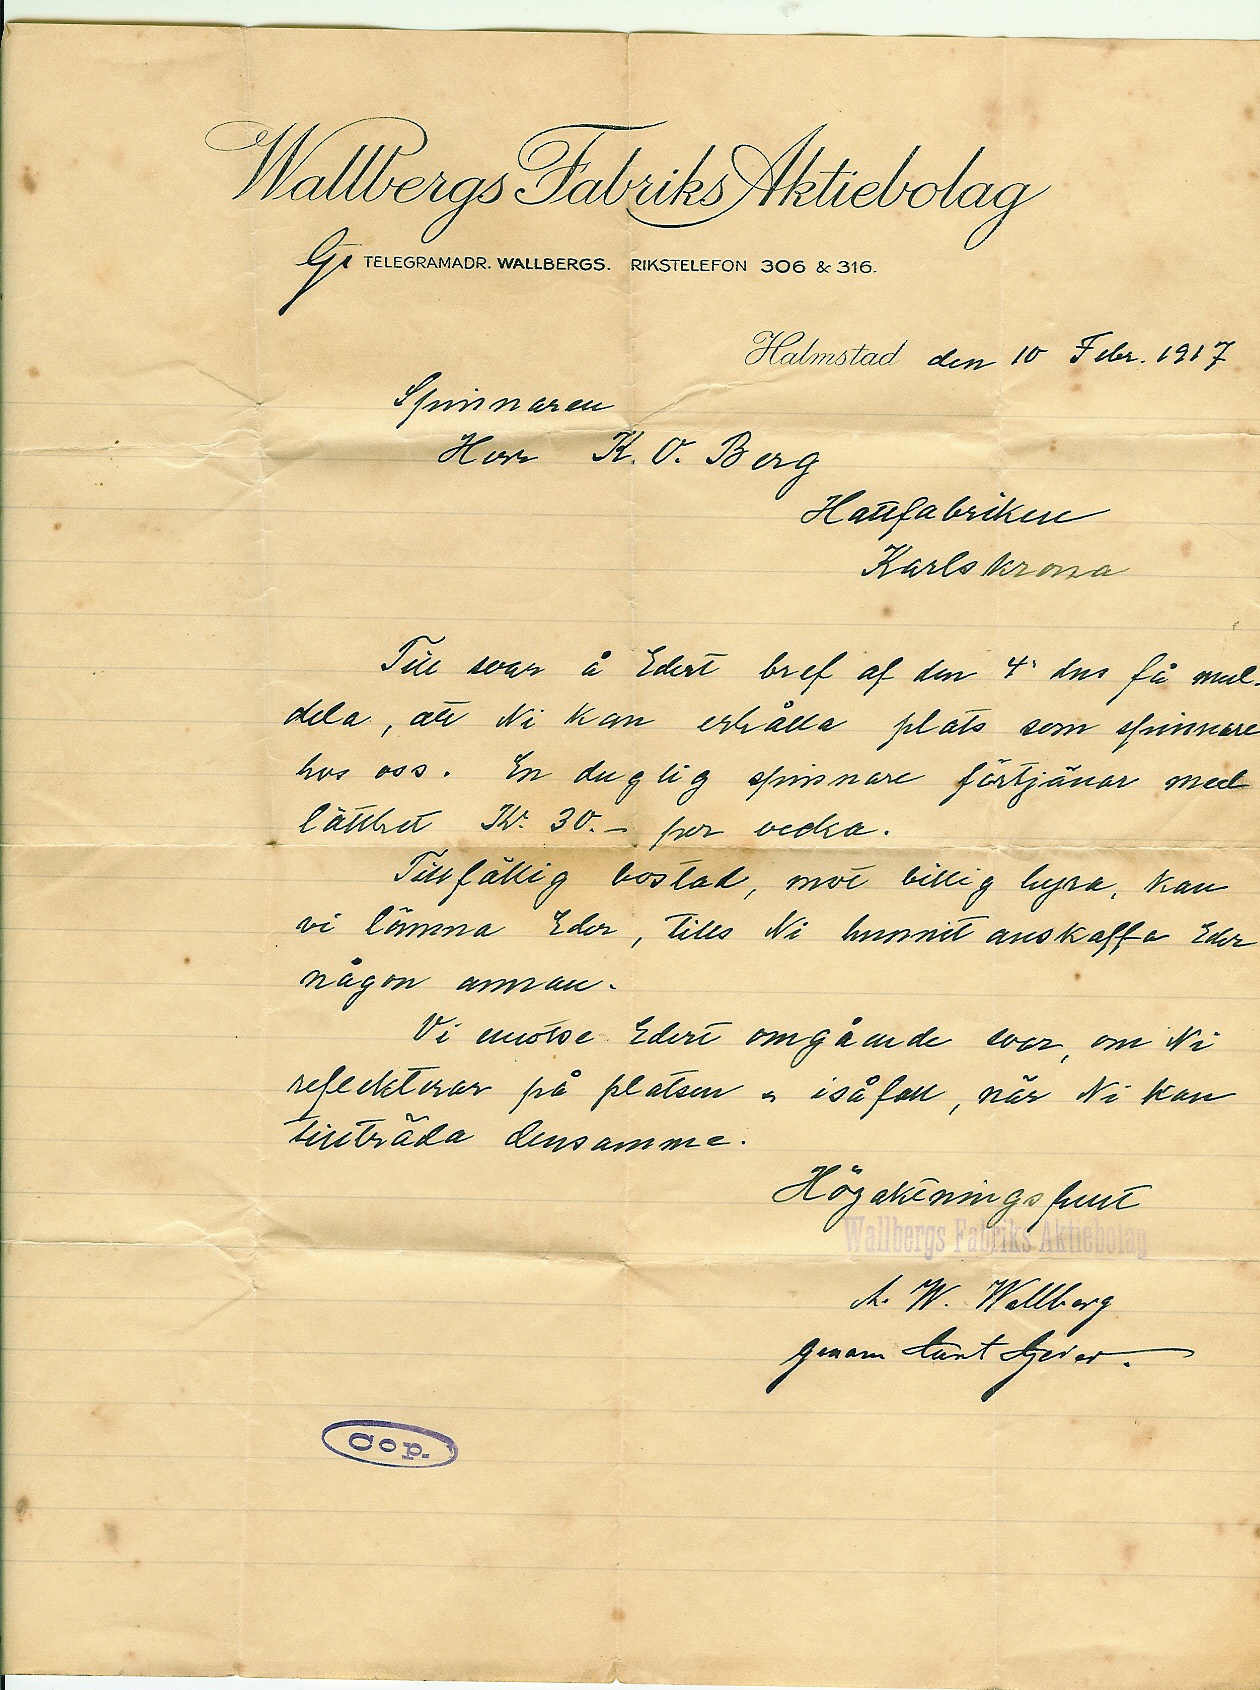 Wallbergs Fabriks Aktiebolag
TELEGRAMADR. WALLBERGS. RIKSTELEFON 306 & 316.
Halmstad den 10 Febr. 1917
Spinnaren
Herr K. O. Berg
Hattfabriken
Karlskrona
Till svar å Edert bref af den 4' dns få med-
dela, att Ni kan erhålla plats som spinnare
hos oss. En duglig spinnare förtjänar med
lätthet Kr. 30.- per vecka.
Tillfällig bostad, mot billig hyra, kan
vi lämna Eder, tills Ni hunnit anskaffa Eder
någon annan.
Vi emotse Edert omgående svar, om Ni
reflekterar på platsen & isåfall, när Ni kan
tillträda densamma.
Högaktningsfullt
Wallbergs Fabriks Aktiebolag
A. W. Wallberg
genom
Cop.